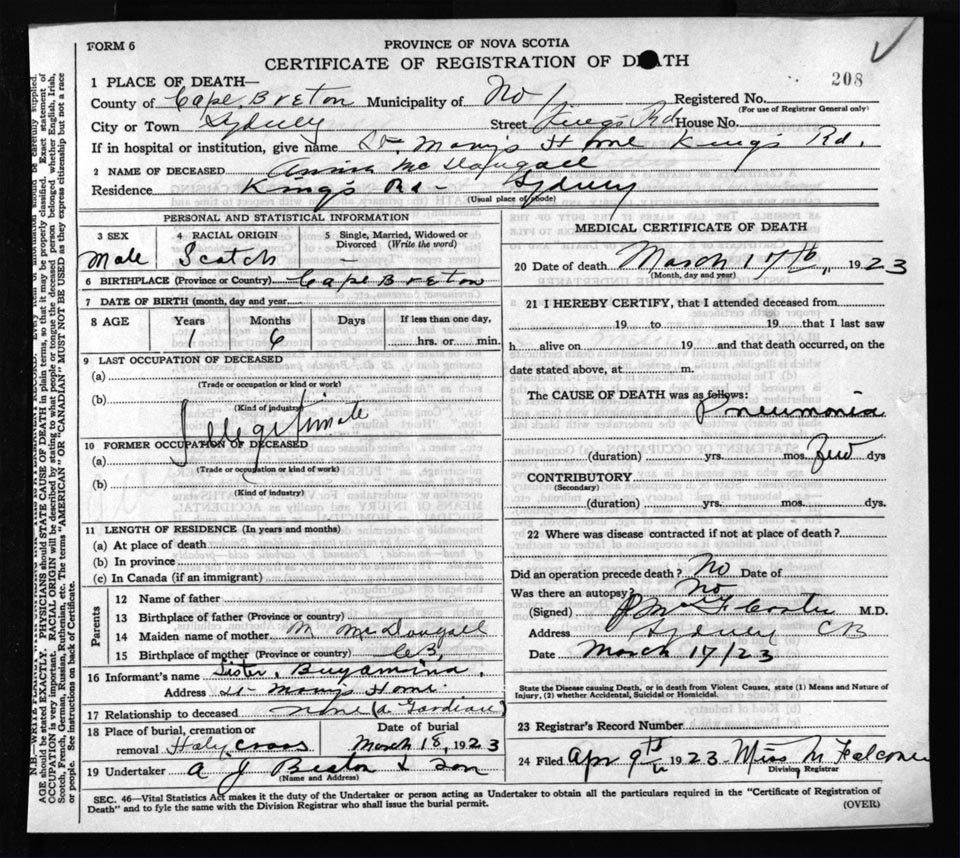 FORM 6
PROVINCE OF NOVA SCOTIA
CERTIFICATE OF REGISTRATION OF DEATH
208
1 PLACE OF DEATH—
County of Cape Breton Municipality of No 1 Registered No.
(For use of Registrar General only)
City or Town Sydney Street Kings Rd House No.
If in hospital or institution, give name St Mary's Home King's Rd.
2 NAME OF DECEASED Mc
Residence King's Rd - Sydney
(Usual place of abode)
PERSONAL AND STATISTICAL INFORMATION
3 SEX 4 RACIAL ORIGIN 5 Single, Married, Widowed or Divorced (Write the word)
Male Scotch —
6 BIRTHPLACE (Province or Country) Cape Breton
7 DATE OF BIRTH (month, day and year)
8 AGE Years Months Days If less than one day,
1 6 hrs. or min.
9 LAST OCCUPATION OF DECEASED
(a)
(Trade or occupation or kind of work)
(b)
(Kind of industry)
Illegitimate
10 FORMER OCCUPATION OF DECEASED
(a)
(Trade or occupation or kind of work)
(b)
(Kind of industry)
11 LENGTH OF RESIDENCE (In years and months)
(a) At place of death
(b) In province
(c) In Canada (if an immigrant)
Parents
12 Name of father
13 Birthplace of father (Province or country)
14 Maiden name of mother M McDougall
15 Birthplace of mother (Province or country) C.B.
16 Informant's name Sister
Address St Mary's Home
17 Relationship to deceased none (a Gardian)
18 Place of burial, cremation or removal Holy Cross Date of burial March 18, 1923
19 Undertaker A J Beaton & Son
(Name and Address)
MEDICAL CERTIFICATE OF DEATH
20 Date of death March 17th, 1923
(Month, day and year)
21 I HEREBY CERTIFY, that I attended deceased from
19 to 19 that I last saw
h alive on 19 and that death occurred, on the
date stated above, at m.
The CAUSE OF DEATH was as follows:
Pneumonia
(duration) yrs. mos. few dys
CONTRIBUTORY
(Secondary)
(duration) yrs. mos. dys.
22 Where was disease contracted if not at place of death?
Did an operation precede death? No Date of
Was there an autopsy? No
(Signed) M.D.
Address Sydney CB
Date March 17/23
State the Disease causing Death, or in death from Violent Causes, state (1) Means and Nature of Injury, (2) whether Accidental, Suicidal or Homicidal.
23 Registrar's Record Number
24 Filed Apr 9th 1923 Miss M Falconer
Division Registrar
SEC. 46—Vital Statistics Act makes it the duty of the Undertaker or person acting as Undertaker to obtain all the particulars required in the "Certificate of Registration of
Death" and to fyle the same with the Division Registrar who shall issue the burial permit.
(OVER)